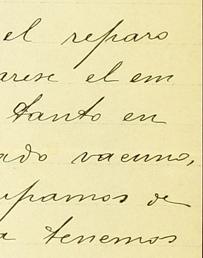 el reparo
arese el em
tanto en
ado vacuno,
upamos de
a tenemos